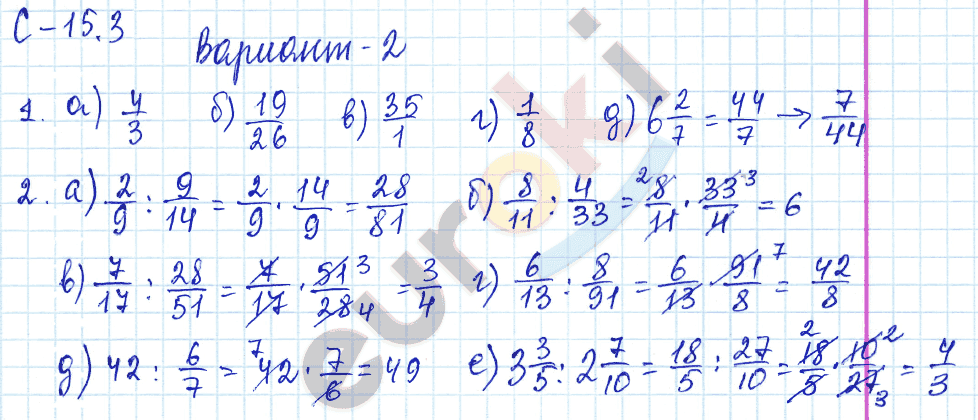 С-15.3
Вариант-2
1. а) 4/3 б) 19/26 в) 35/1 г) 1/8 д) 6 2/7 = 44/7 → 7/44
2. а) 2/9 : 9/14 = 2/9 · 14/9 = 28/81 б) 8/11 : 4/33 = ²8/11 · 33³/4 = 6
в) 7/17 : 28/51 = 7/17 · 51³/28₄ = 3/4 г) 6/13 : 8/91 = 6/13 · 91⁷/8 = 42/8
д) 42 : 6/7 = ⁷42 · 7/6 = 49 е) 3 3/5 : 2 7/10 = 18/5 : 27/10 = ²18/5 · 10²/27₃ = 4/3
euroki